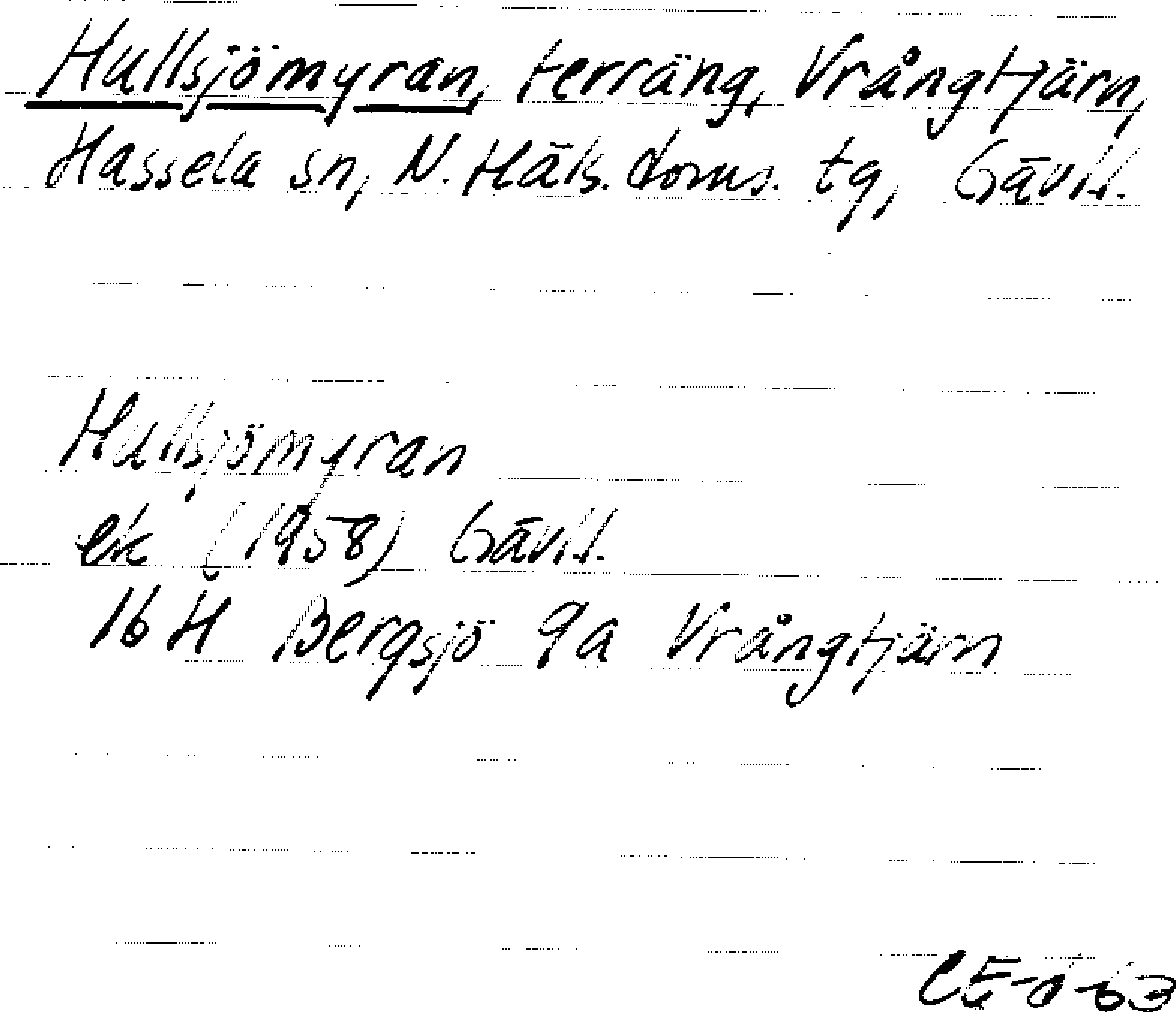 Hullsjömyran, terräng, Vrångtjärn,
Hassela sn, N. Häls. doms. tg, Gävl.
Hullsjömyran
ek (1958) Gävl.
16 H Bergsjö 9a Vrångtjärn